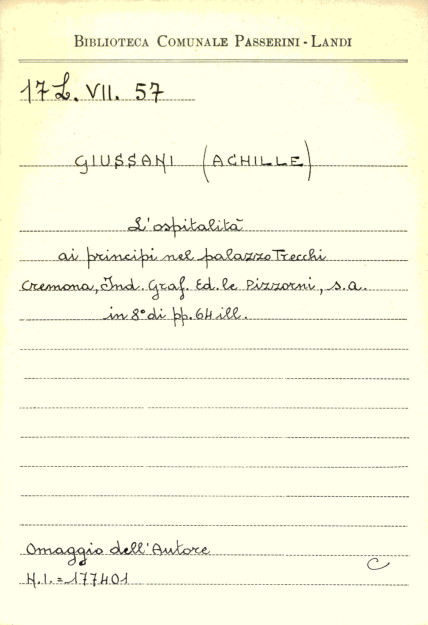 BIBLIOTECA COMUNALE PASSERINI - LANDI
17 L. VII. 57
GIUSSANI (ACHILLE)
L'ospitalità
ai principi nel palazzo Trecchi
Cremona, Ind. Graf. Ed. le Pizzorni, s.a.
in 8° di pp. 64 ill.
Omaggio dell'Autore
C
N.I. = 177401